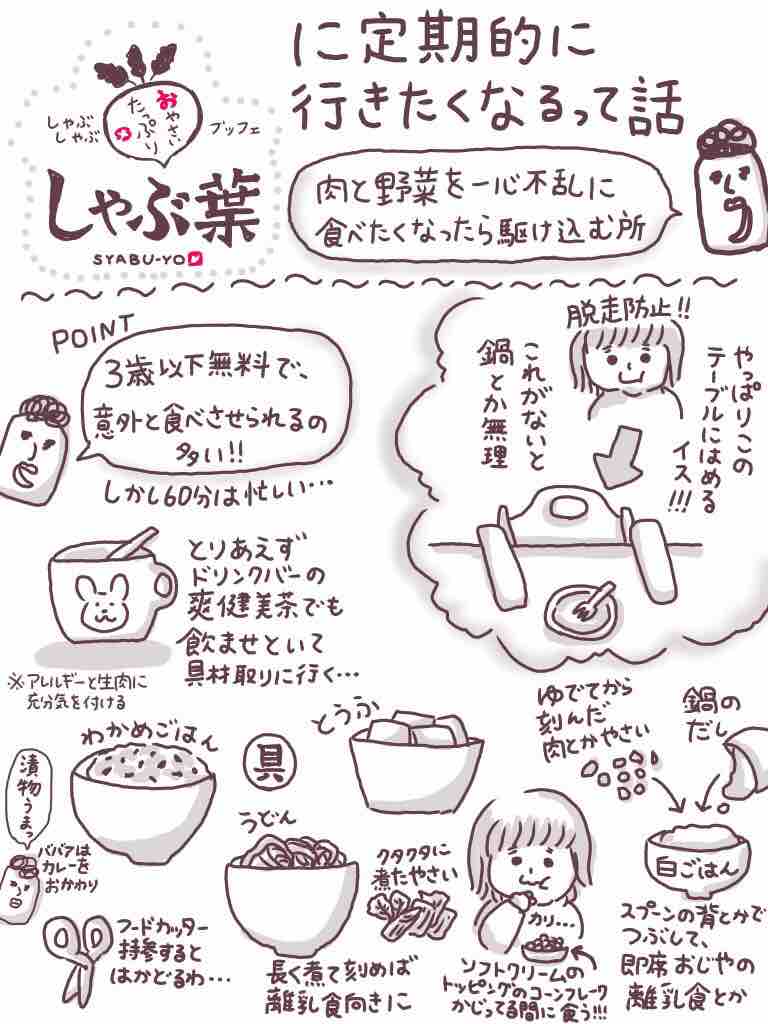 に定期的に
行きたくなるって話
しゃぶ
しゃぶ
おやさい
たっぷり
ブッフェ
しゃぶ葉
SYABU-YO
肉と野菜を一心不乱に
食べたくなったら駆け込む所
POINT
3歳以下無料で、
意外と食べさせられるの
多い!!
しかし60分は忙しい…
脱走防止!!
やっぱりこの
テーブルにはめる
イス!!!
これがないと
鍋とか無理
とりあえず
ドリンクバーの
爽健美茶でも
飲ませといて
具材取りに行く…
※アレルギーと生肉に
充分気を付ける
わかめごはん
具
とうふ
ゆでてから
刻んだ
肉とかやさい
鍋の
だし
漬物うまっ
ババアは
カレーを
おかわり
うどん
クタクタに
煮たやさい
白ごはん
カリ…
フードカッター
持参すると
はかどるわ…
長く煮て刻めば
離乳食向きに
ソフトクリームの
トッピングのコーンフレーク
かじってる間に食う!!!
スプーンの背とかで
つぶして、
即席おじやの
離乳食とか